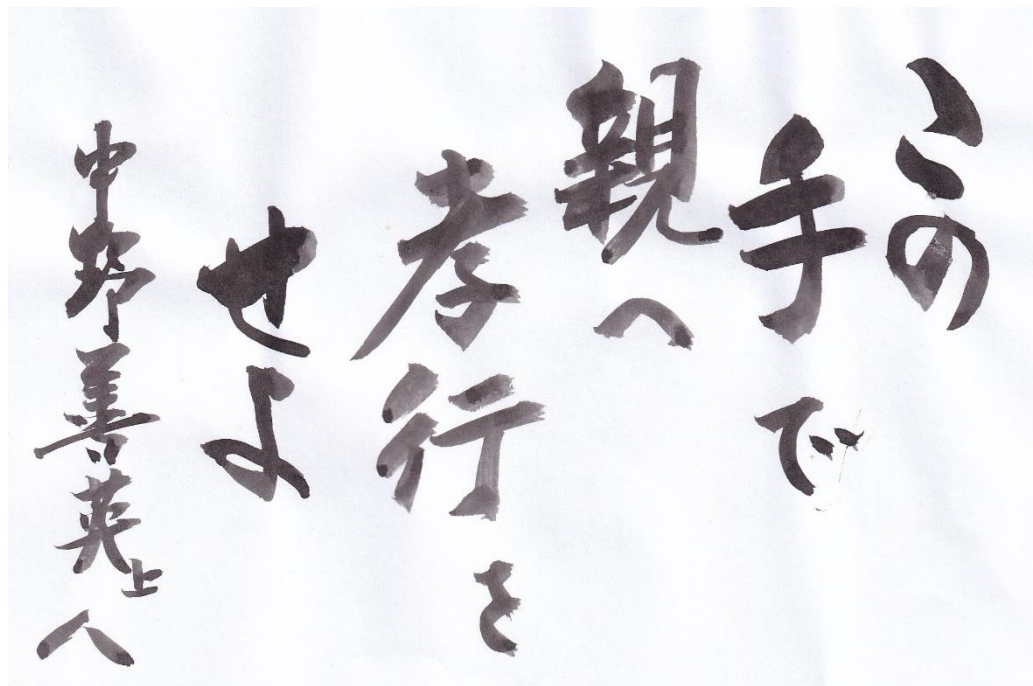 この
手で
親へ
孝行を
せよ
中野善英上人